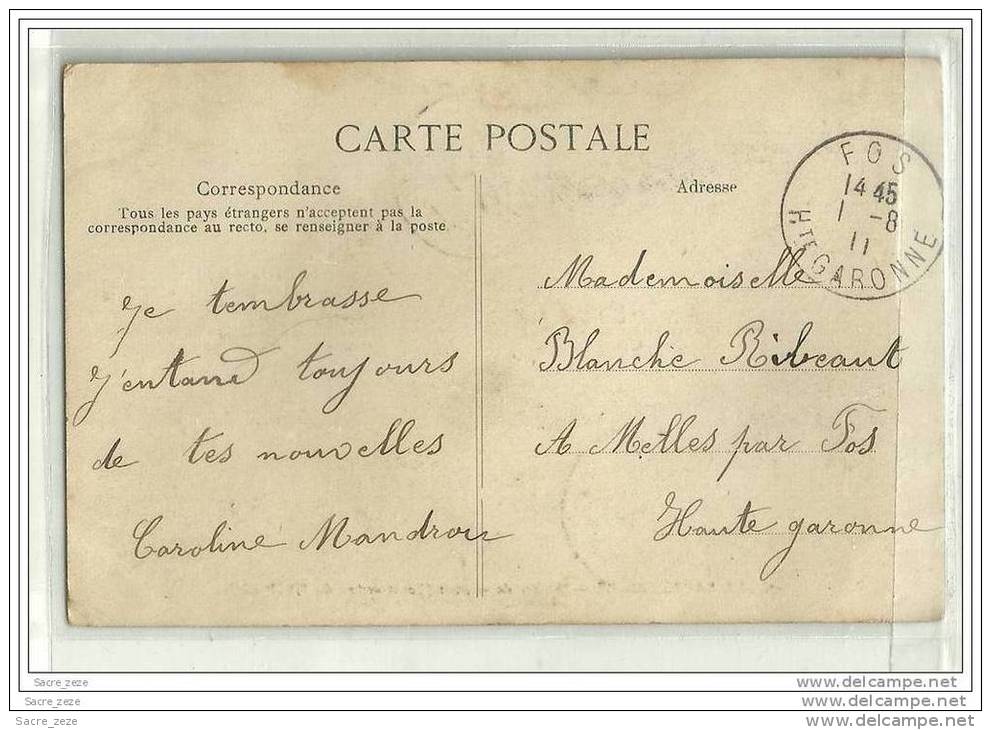 CARTE POSTALE
Correspondance
Tous les pays étrangers n'acceptent pas la
correspondance au recto, se renseigner à la poste
Je tembrasse
J'entand toujours
de tes nouvelles
Caroline
Adresse
FOS
14 45
1 -8
11
HTE GARONNE
Mademoiselle
Blanche Ribeaut
A Melles par Fos
Haute garonne
Sacre_zeze
Sacre_zeze
Sacre_zeze
www.delcampe.net
www.delcampe.net
www.delcampe.net